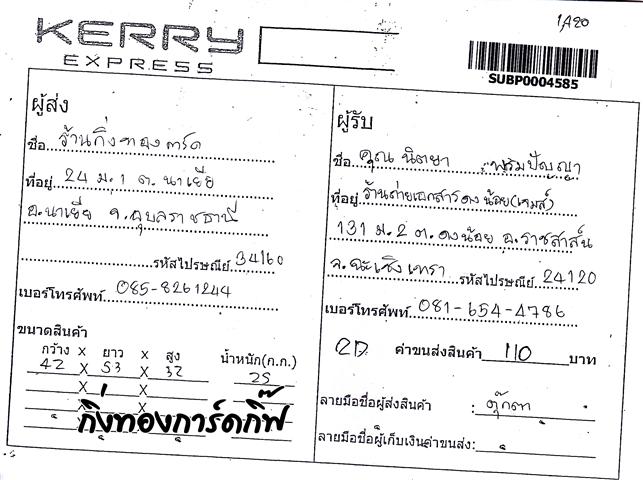 1A20
KERRY
EXPRESS
SUBP0004585
ผู้ส่ง
ชื่อ ร้านกิ่งทองการ์ด
ที่อยู่ 24 ม.1 ต.นาเยีย
อ.นาเยีย จ.อุบลราชธานี
รหัสไปรษณีย์ 34160
เบอร์โทรศัพท์ 085-8261244
ขนาดสินค้า
กว้าง x ยาว x สูง น้ำหนัก(ก.ก.)
42 X 53 X 32 25
X X
X X
กิ่งทองการ์ดกิ๊ฟ
ผู้รับ
ชื่อ คุณ นิตยา พรมปัญญา
ที่อยู่ ร้านถ่ายเอกสารดงน้อย(เจมส์)
131 ม.2 ต.ดงน้อย อ.ราชสาส์น
จ.ฉะเชิงเทรา รหัสไปรษณีย์ 24120
เบอร์โทรศัพท์ 081-654-4786
ค่าขนส่งสินค้า 110 บาท
ลายมือชื่อผู้ส่งสินค้า : ตุ๊กตา
ลายมือชื่อผู้เก็บเงินค่าขนส่ง: